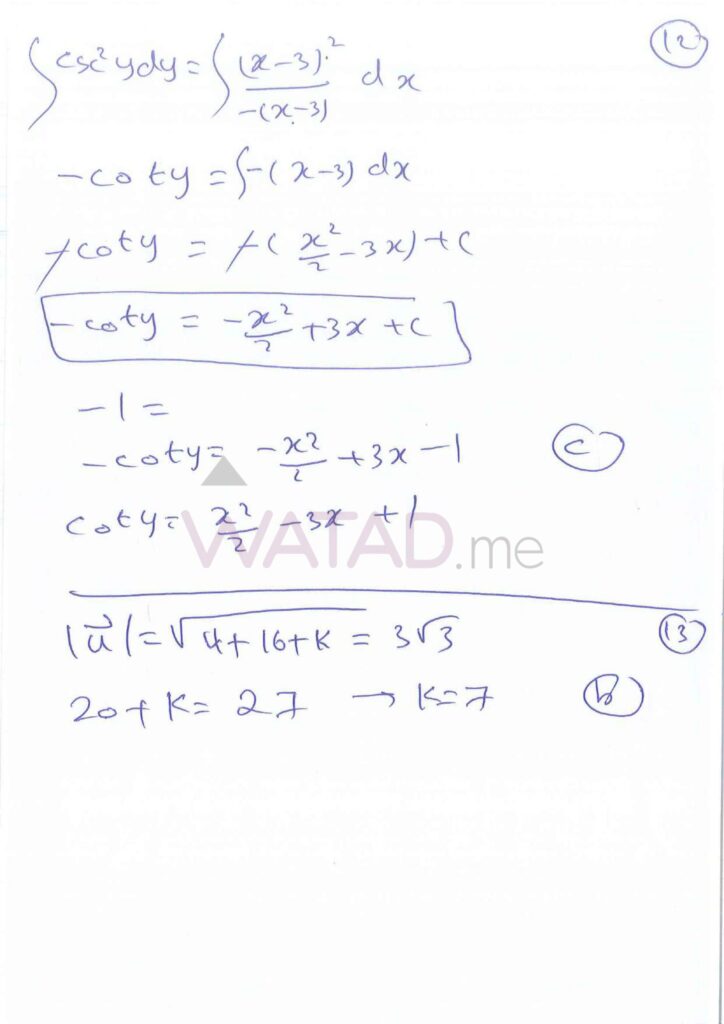 ∫csc²y dy = ∫ (x-3)² / -(x-3) dx (12)
-cot y = ∫-(x-3) dx
-cot y = -(x²/2 - 3x) + c
-cot y = -x²/2 + 3x + c
-1 =
-cot y = -x²/2 + 3x - 1 (c)
cot y = x²/2 - 3x + 1
WATAD.me
|u⃗| = √4+16+K = 3√3 (13)
20 + K = 27 → K=7 (b)